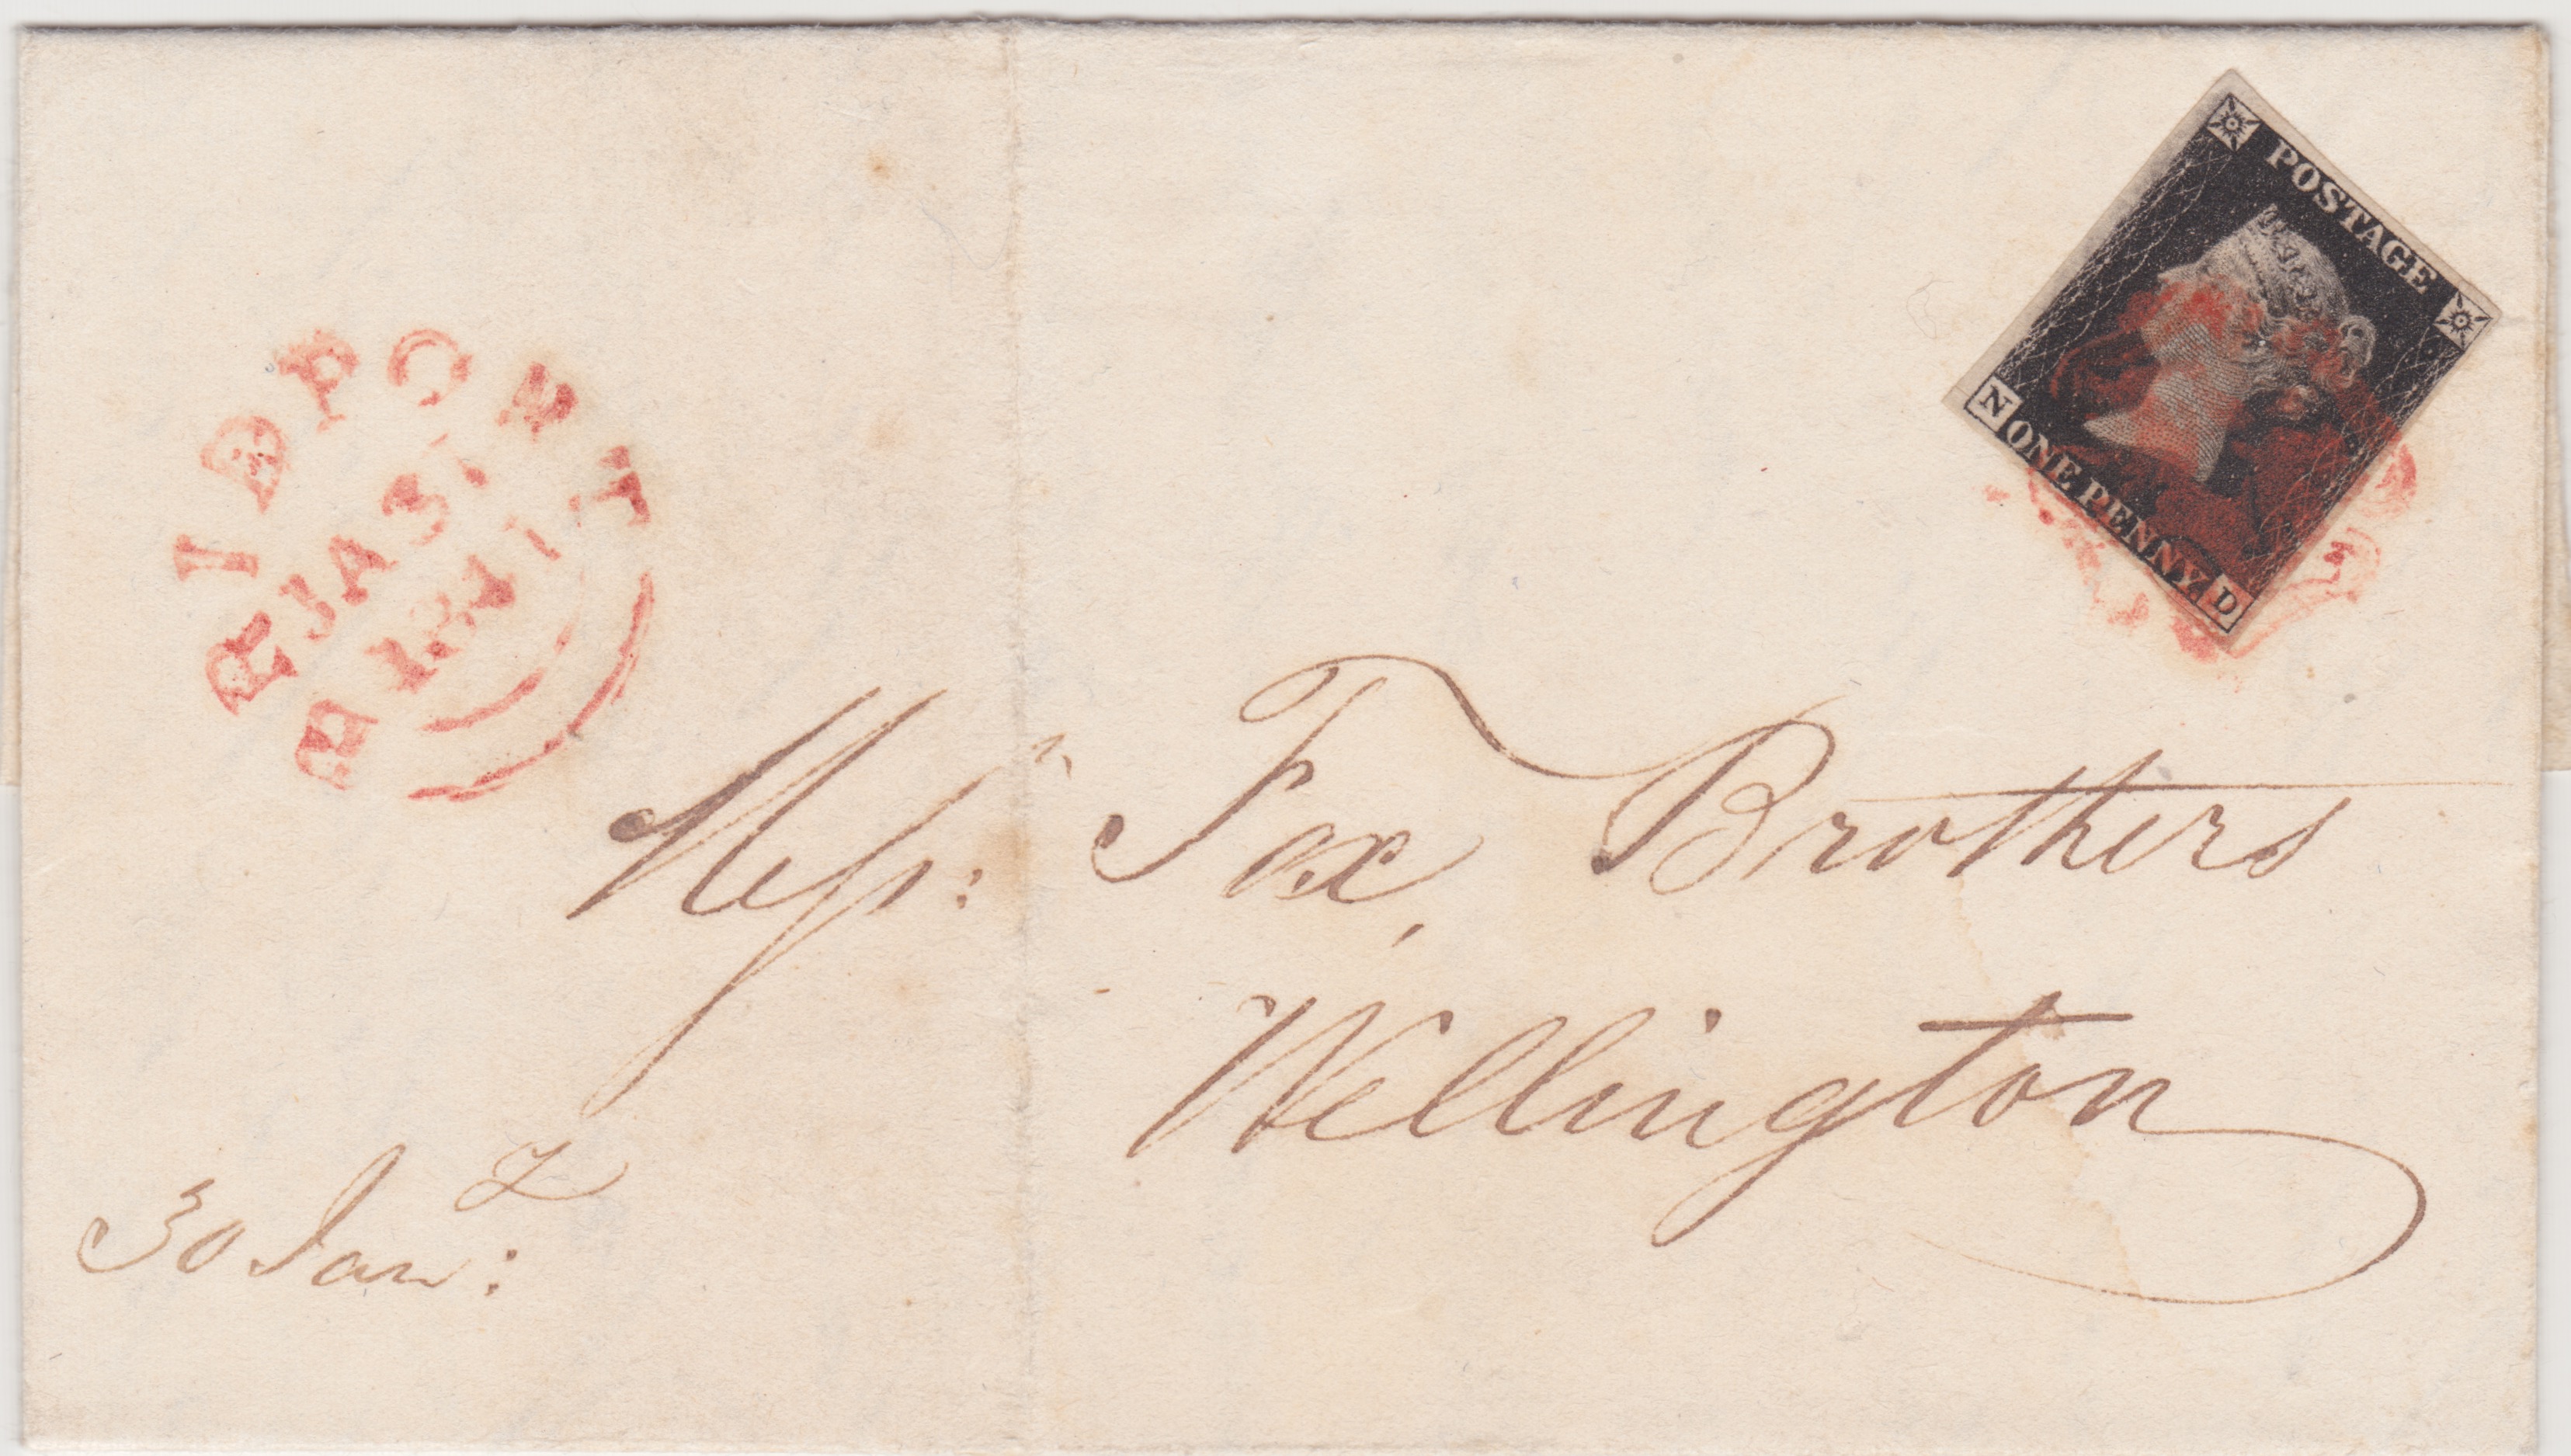 BRIDPORT
JA 31
1841
POSTAGE
N ONE PENNY D
Mess: rs Fox, Brothers
Wellington
30 Jan: y